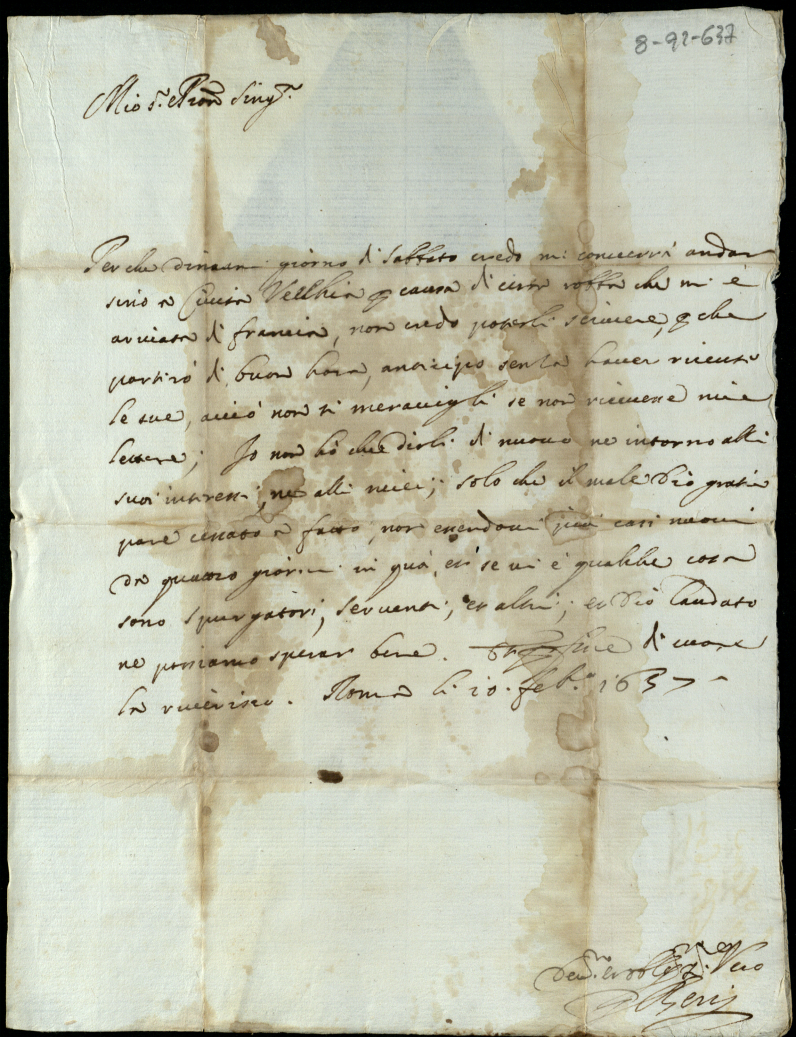 8-92-637
Mio s.r e Pron Sing.r
Per che giorno di Sabbato credo mi converrà andar
sino a Civita Vecchia causa di certa robba che mi è
arivata di francia, non credo poterli scrivere, che
partirò di buon hora, anticipo senza haver ricevuti
le sue, acciò non si meravigli se non riceverse mie
lettere; Io non hò che dirli di nuovo ne intorno alli
suoi interessi, ne alli miei; solo che il male Dio gratia
pare cessato a fatto, non essendovi più casi nuovi
da quattro giorni in quà, et se vi è qualche cosa
sono spurgatori, serventi, et altri; et Dio laudato
ne possiamo sperar bene. fine di cuore
la riverisco. Roma li 10. feb.o 1657
Dev.mo et Vero